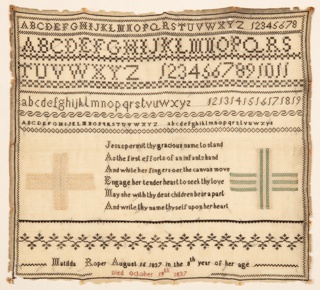 ABCDEFGHIJKLMNOPQRSTUVWXYZ 12345678
ABCDEFGHIJKLMNOPQRS
TUVWXYZ 1234567891011
abcdefghijklmnopqrstuvwxyz 1213141516171819
ABCDEFGHIJKLMNOPQRSTUVWXYZ abcdefghijklmnopqrstuvwxyz
Jesus permit thy gracious name to stand
As the first efforts of an infants hand
And while her fingers oer the canvas move
Engage her tender heart to seek thy love
May she with thy dear children be in a part
And write thy name thyself upon her heart
Matilda Roper August 16 1857 in the 8th year of her age
Died October 19th 1857